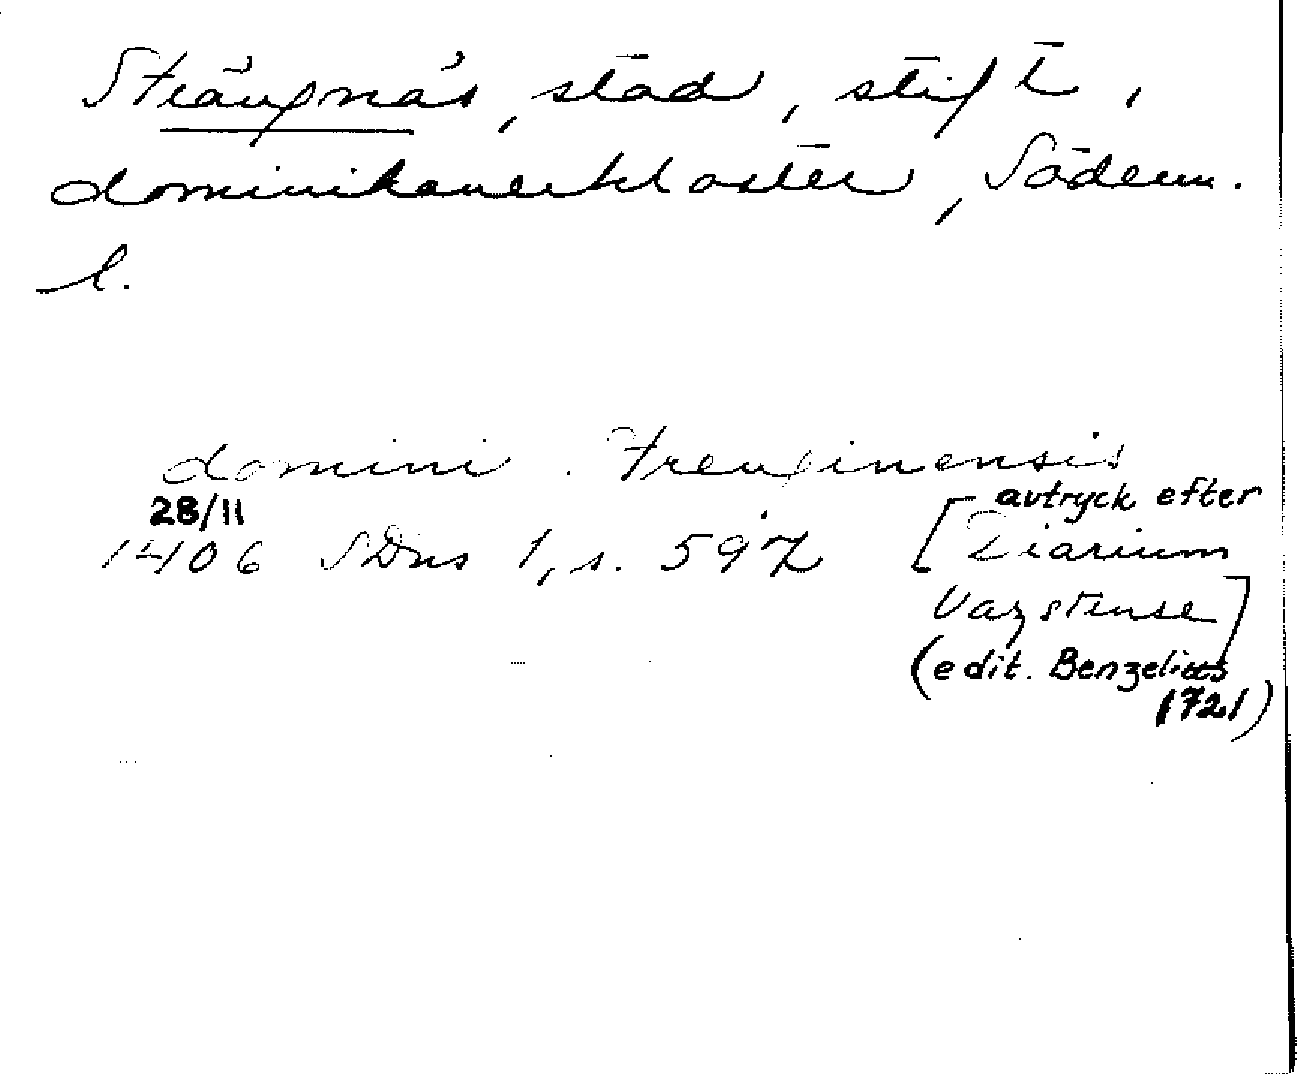 Strängnäs, stad, stift,
dominikanerkloster, Söderm.
l.
domini . Trenginensis
28/11
1406 SDns 1, s. 597 [avtryck efter
Diarium
Vazstense]
(edit. Benzelius
1721)